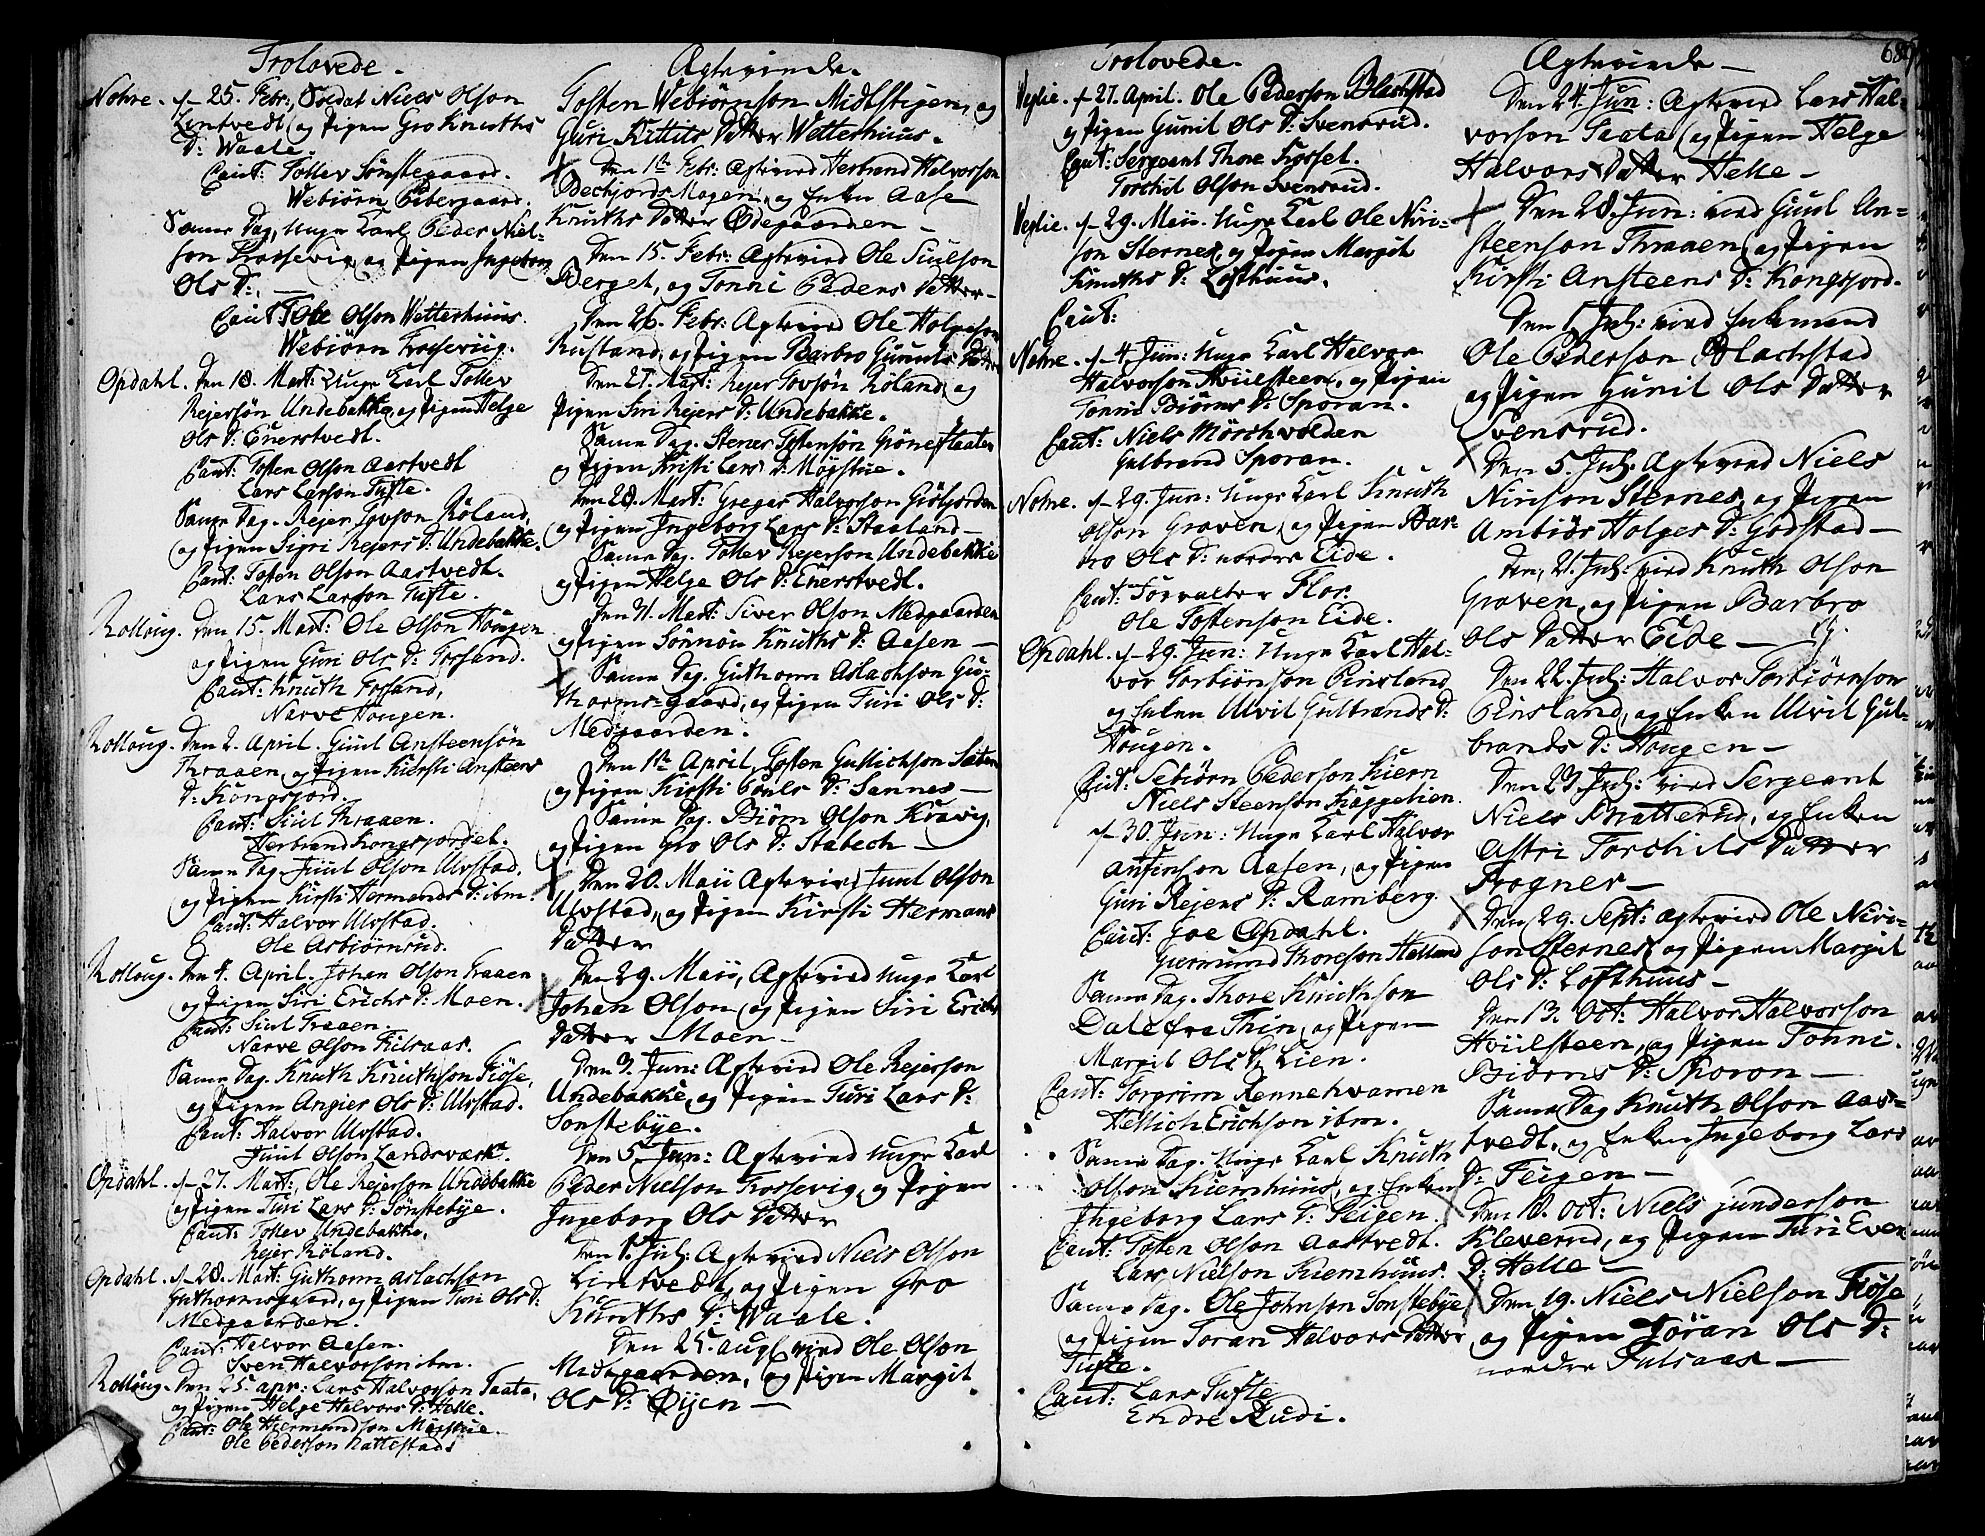 Trolovede.
Nohre. d. 25. Febr: Soldat Niels Olson
Lintvedt, og Pigen Gro Knuths
D: Waale.
Caut: Tollev Sönstegaard.
Webiörn Bibergaard.
Samme Dag, Unge Karl Peder Niel-
son Frossevig, og Pigen Ingeborg
Ols D: —
Caut: Ole Olson Wetterhuus.
Webiörn Frossevig.
Opdahl. Den 18. Mart: Unge Karl Tollev
Rejersön Undebakke, og Pigen Helge
Ols D: Enerstvedt.
Caut: Tosten Olson Aastvedt
Lars Larson Tufte.
Samme Dag. Rejer Tovson Röland,
og Pigen Sigri Rejers D: Undebakke.
Caut: Tosten Olson Aastvedt.
Lars Larson Tufte.
Rolloug. Den 15. Mart: Ole Olson Hougen
og Pigen Guri Ols D: Fossand.
Caut: Knuth Fossand,
Narve Hougen.
Rolloug. Den 2. April. Giul Ansteensön
Thraaen, og Pigen Kiersti Ansteens
D: Kongsjord.
Caut: Siul Thraaen.
Herbrand Kongsjordet.
Samme Dag. Juul Olson Ulvstad,
og Pigen Kirsti Hermands D: ibm.
Caut: Halvor Ulvstad.
Ole Asbiörnrud.
Rolloug. Den 4. April. Johan Olson Traaen
og Pigen Siri Erichs D: Moen.
Caut: Siul Traaen.
Narve Olson Fulsaas.
Samme Dag. Knuth Knuthson Fiöse,
og Pigen Angier Ols D: Ulvstad.
Caut: Halvor Ulvstad.
Juul Olson Landsværk.
Opdahl. d. 27. Mart: Ole Rejerson Undebakke
og Pigen Turi Lars D: Sönstebye.
Caut: Tollev Undebakke,
Rejer Röland.
Opdahl. d. 28. Mart: Guthorm Aslachson
Guthormsgaard, og Pigen Turi Ols D:
Medgaarden.
Caut: Halvor Aasen.
Sven Halvorson ibm.
Rolloug. Den 25. apr: Lars Halvorson Taata,
og Pigen Helge Halvors D: Helle.
Caut: Ole Hermandson Mögstue.
Ole Pederson Nattestad
Agteviede.
Tosten Webiörnson Midtstigen, og
Guri Kittils Datter Wetterhuus.
Den 1te Febr: Agtevied Herbrand Halvorson
Bechjords Mogen, og Enken Aase
Knuths Datter Ödegaarden —
Den 15. Febr: Agtevied Ole Siulson
Berget, og Tonni Peders Datter —
Den 26. Febr: Agtevied Ole Holgeson
Rustand, og Pigen Barbro Gunuls Datter
Den 27. Mart: Rejer Tovsön Röland, og
Pigen Siri Rejers D: Undebakke.
Samme Dag. Stener Tostensön Gröneflaaten
og Pigen Kristi Lars D: Mögstue.
Den 28. Mart: Greger Halvorson Giötjorden
og Pigen Ingeborg Lars D: Staaland —
Samme Dag. Tollev Rejerson Undebakke
og Pigen Helge Ols D: Enerstvedt.
Den 31. Mart: Siver Olson Medgaarden
og Pigen Sönnou Knuths D: Aasen —
Samme Dag. Guthorm Aslachson Gu-
thorms-gaard, og Pigen Turi Ols D:
Medgaarden.
Den 1te April, Tosten Gullichson Sæten
og Pigen Kirsti Pouls D: Sannes —
Samme Dag. Biörn Olson Kravig,
og Pigen Gro Ols D: Stabech —
Den 20. Maii Agtevied Juul Olson
Ulvstad, og Pigen Kirsti Hermans
Datter
Den 29. Maii, Agtevied Unge Karl
Johan Olson, og Pigen Siri Erichs
Datter Moen —
Den 3. Jun: Agtevied Ole Rejerson
Undebakke, og Pigen Turi Lars D:
Sonstebÿe.
Den 5. Jun: Agtevied Unge Karl
Peder Nielson Frossevig, og Pigen
Ingeborg Ols Datter
Den 1. Jul: Agtevied Niels Olson
Lintvedt, og Pigen Gro
Knuths D: Waale.
Den 25. aug: vied Ole Olson
Medgaarden, og Pigen Margit
Ols D: Öÿen —
Trolovede.
Veglie. d. 27. April. Ole Pederson Blachstad
og Pigen Gunil Ols D: Svensrud.
Caut: Sergeant Thore Fosset.
Torchil Olson Svensrud.
Veglie. d. 29. Maii. Unge Karl Ole Niri-
son Sternes, og Pigen Margit
Knuths D: Lofthuus.
Caut:
Nohre. d. 4. Jun: Unge Karl Halvor
Halvorson Hviilsteen, og Pigen
Tonni Biörns D: Sporan.
Caut: Niels Mörchvolden
Gulbrand Sporan.
Nohre. d. 29. Jun: Unge Karl Knuth
Olson Graven, og Pigen Bar-
bro Ols D: nordre Eide.
Caut: Forvalter Flor.
Ole Tostenson Eide.
Opdahl. d. 29. Jun: Unge Karl Hal-
vor Torbiörnson Pinsland
og Enken Ulvil Gulbrands D:
Hougen.
Caut: Sebiörn Pederson Kiern
Niels Steenson Kappelien.
d. 30. Jun: Unge Karl Halvor
Antenson Aasen, og Pigen
Guri Rejers D: Ramberg.
Caut: Goe Opdahl.
Giermund Thoreson Helland
Samme Dag. Thore Knuthson
Dale fra Thin, og Pigen
Margit Ols D: Lien.
Caut: Torgrim Rennehvamen
Hellich Erichson ibm.
Samme Dag. Unge Karl Knuth
Olson Kiemhuus, og Enken
Ingeborg Lars D: Feigen.
Caut: Tosten Olson Aastvedt.
Lars Nielson Kiemhuus.
Samme Dag. Ole Johnson Sonstebÿe
og Pigen Joran Halvors Datter
Tufte.
Caut: Lars Tufte
Endre Rudi.
Agteviede —
689
Den 24. Jun: Agtevied Lars Hal-
vorson Taata, og Pigen Helge
Halvors Datter Helle —
Den 28. Jun: vied Giul An-
steenson Thraaen, og Pigen
Kirsti Ansteens D: Kongsjord.
Den 1. Jul: vied Enkemand
Ole Pederson Blachstad
og Pigen Gunil Ols Datter
Svensrud.
Den 5. Jul: Agtevied Niels
Nirison Sternes, og Pigen
Ambiör Holges D: Godstad —
Den 21. Jul: vied Knuth Olson
Graven, og Pigen Barbro
Ols Datter Eide —
Den 22. Jul: Halvor Torbiörnson
Pinsland, og Enken Ulvil Gul-
brands D: Hougen —
Den 23. Jul: vied Sergeant
Niels Bratterud, og Enken
Astri Torchils Datter
Frogner —
Den 29. Sept: agtevied Ole Niri-
son Sternes, og Pigen Margit
Ols D: Lofthuus —
Den 13. Oct: Halvor Halvorson
Hviilsteen, og Pigen Tonni.
Biörns D: Sporon —
Samme Dag Knuth Olson Aas-
tvedt, og Enken Ingeborg Lars
D: Feigen —
Den 18. Oct: Niels Gunderson
Kleverud, og Pigen Turi Even
D: Helle —
Den 19. Niels Nielson Fiöse
og Pigen Jöran Ols D:
nordre Fulsaas —